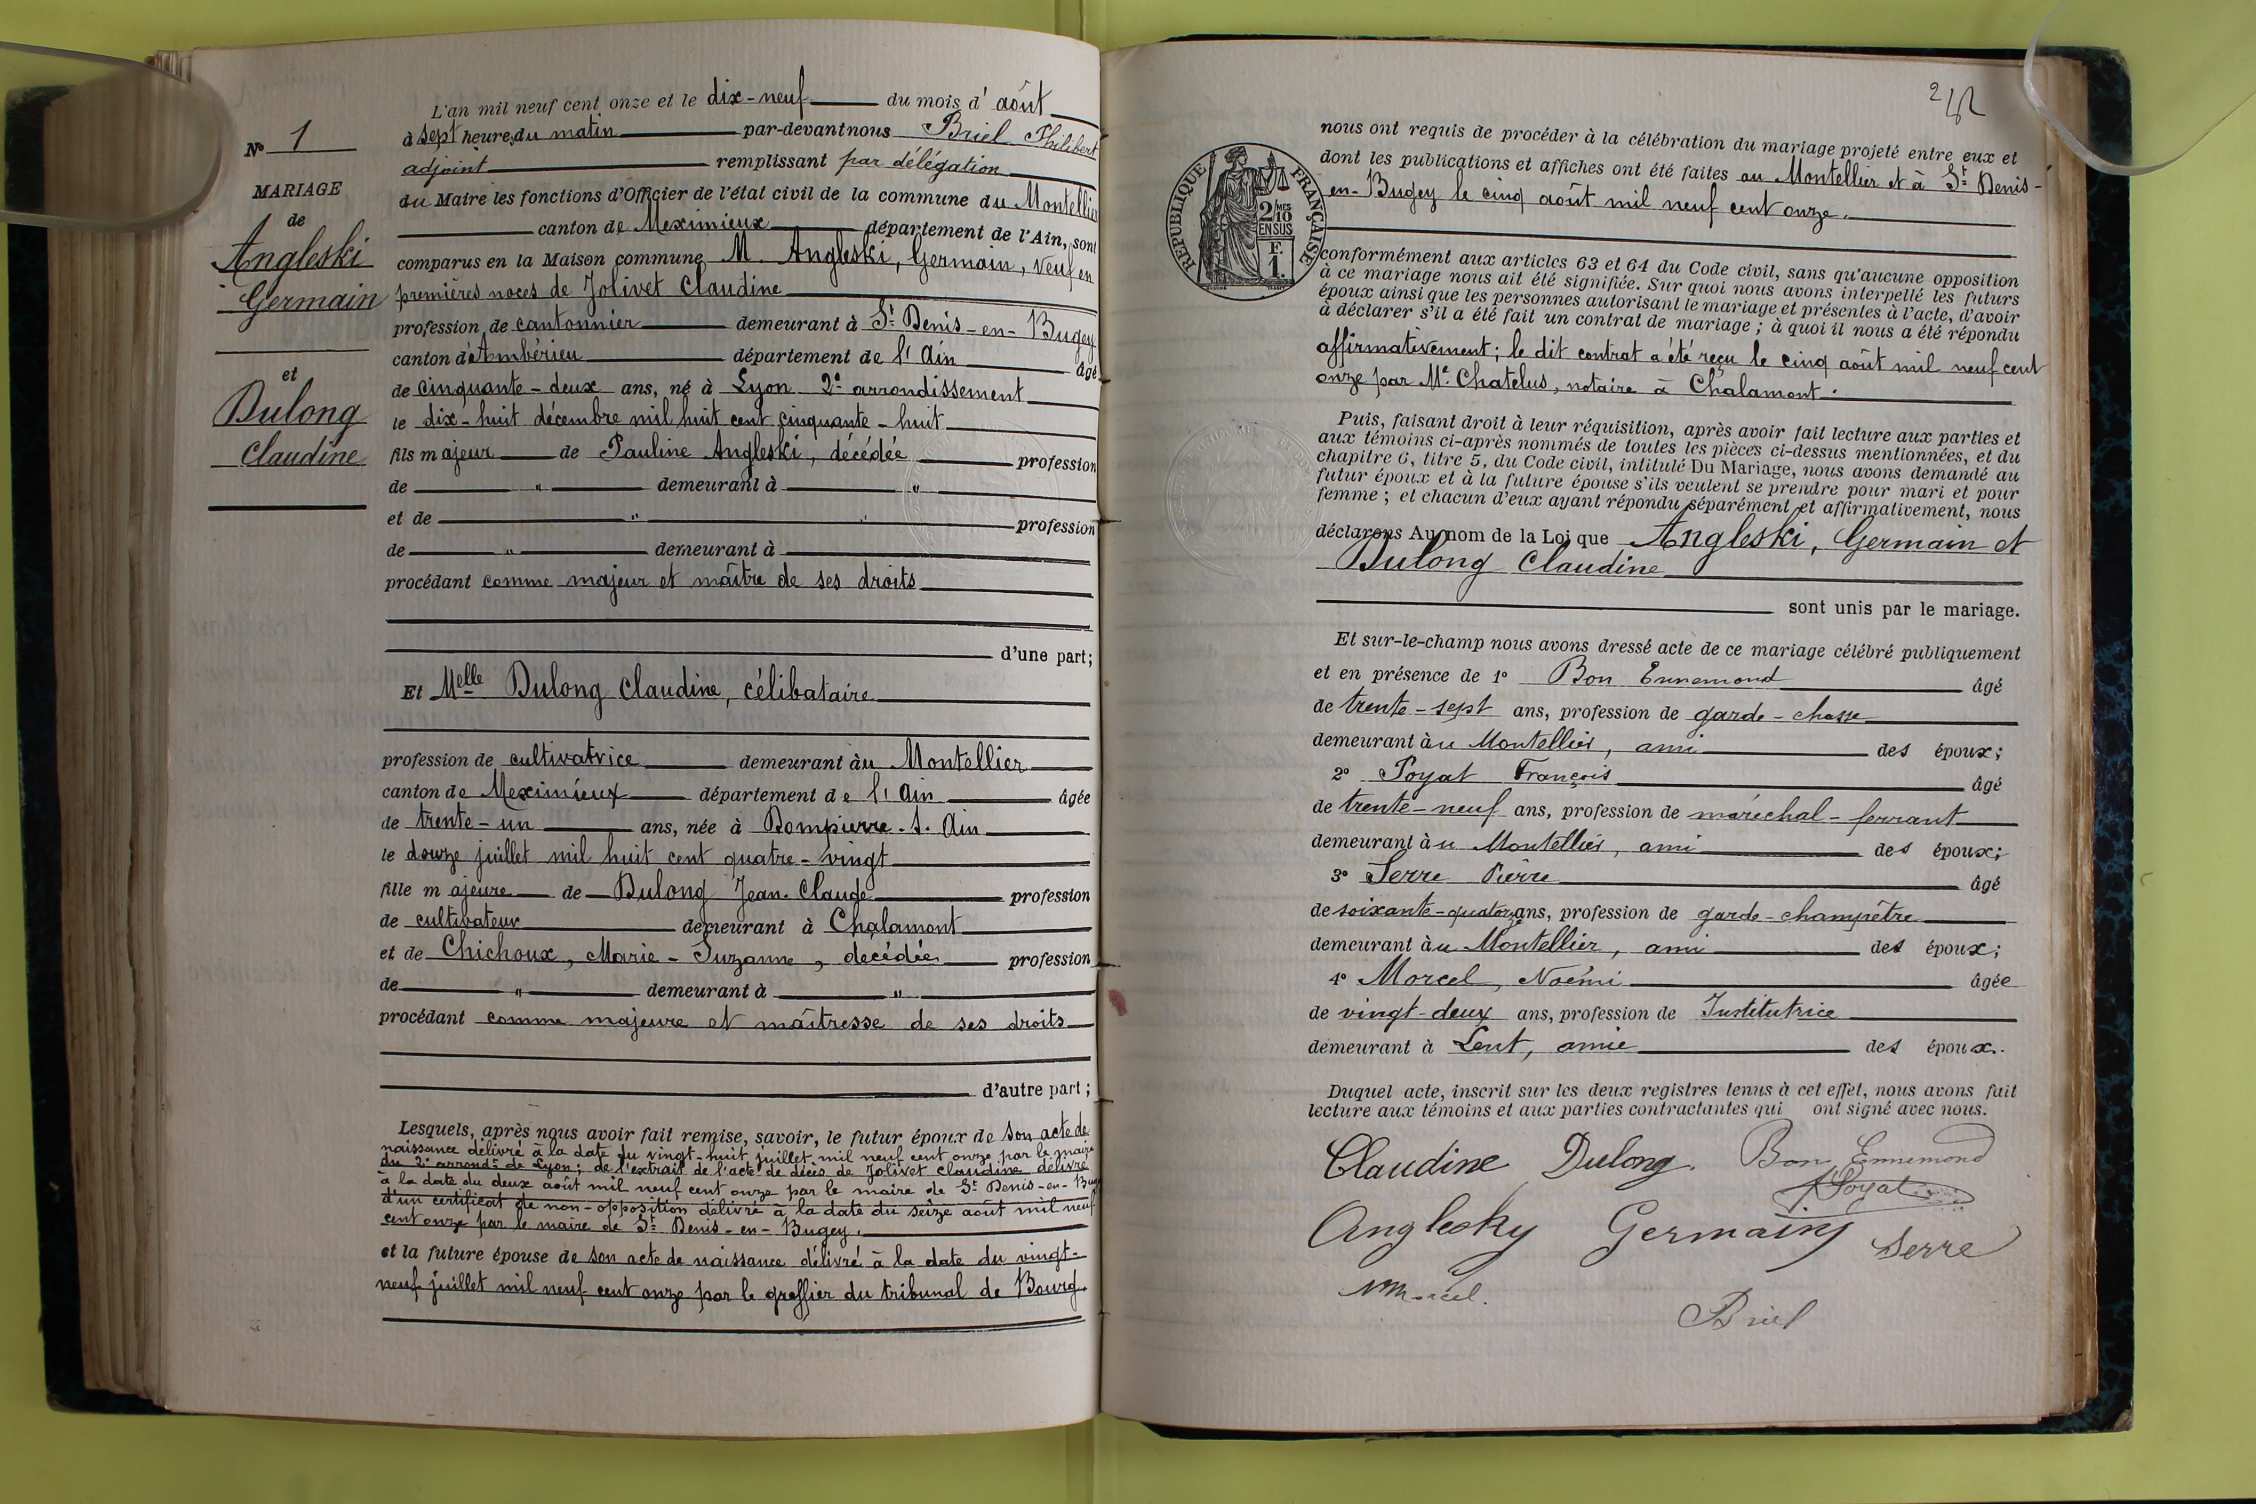 N° 1
MARIAGE
de
Angleski
Germain
et
Dulong
Claudine
L'an mil neuf cent onze et le dix-neuf du mois d'août
à sept heures du matin par-devant nous Briel Philibert
adjoint remplissant par délégation
du Maire les fonctions d'Officier de l'état civil de la commune du Montellier
canton de Meximieux département de l'Ain, sont
comparus en la Maison commune M. Angleski, Germain, veuf en
premières noces de Jolivet Claudine
profession de cantonnier demeurant à St Denis-en-Bugey
canton d'Ambérieu département de l'Ain âgé
de cinquante-deux ans, né à Lyon 2e arrondissement
le dix-huit décembre mil huit cent cinquante-huit
fils majeur de Pauline Angleski, décédée profession
de " demeurant à "
et de " " profession
de " demeurant à
procédant comme majeur et maître de ses droits
d'une part;
Et Melle Dulong Claudine, célibataire
profession de cultivatrice demeurant au Montellier
canton de Meximieux département de l'Ain âgée
de trente-un ans, née à Dompierre-s.-Ain
le douze juillet mil huit cent quatre-vingt
fille majeure de Dulong Jean-Claude profession
de cultivateur demeurant à Chalamont
et de Chichoux, Marie-Suzanne, décédée profession
de " demeurant à "
procédant comme majeure et maîtresse de ses droits
d'autre part;
Lesquels, après nous avoir fait remise, savoir, le futur époux de son acte de
naissance délivré à la date du vingt-huit juillet mil neuf cent onze par le maire
du 2e arrondt de Lyon; de l'extrait de l'acte de décès de Jolivet Claudine délivré
à la date du deux août mil neuf cent onze par le maire de St Denis-en-Bugey
d'un certificat de non-opposition délivré à la date du seize août mil neuf
cent onze par le maire de St Denis-en-Bugey.
et la future épouse de son acte de naissance délivré à la date du vingt-
neuf juillet mil neuf cent onze par le greffier du tribunal de Bourg
RÉPUBLIQUE FRANÇAISE
2/10 MES
EN SUS
F.
1.
nous ont requis de procéder à la célébration du mariage projeté entre eux et
dont les publications et affiches ont été faites au Montellier et à St Denis-
en-Bugey le cinq août mil neuf cent onze.
conformément aux articles 63 et 64 du Code civil, sans qu'aucune opposition
à ce mariage nous ait été signifiée. Sur quoi nous avons interpellé les futurs
époux ainsi que les personnes autorisant le mariage et présentes à l'acte, d'avoir
à déclarer s'il a été fait un contrat de mariage; à quoi il nous a été répondu
affirmativement; le dit contrat a été reçu le cinq août mil neuf cent
onze par Me Chatelus, notaire à Chalamont.
Puis, faisant droit à leur réquisition, après avoir fait lecture aux parties et
aux témoins ci-après nommés de toutes les pièces ci-dessus mentionnées, et du
chapitre 6, titre 5, du Code civil, intitulé Du Mariage, nous avons demandé au
futur époux et à la future épouse s'ils veulent se prendre pour mari et pour
femme; et chacun d'eux ayant répondu séparément et affirmativement, nous
déclarons Au nom de la Loi que Angleski, Germain et
Dulong Claudine
sont unis par le mariage.
Et sur-le-champ nous avons dressé acte de ce mariage célébré publiquement
et en présence de 1° Bon Ennemond âgé
de trente-sept ans, profession de garde-chasse
demeurant au Montellier, ami des époux;
2° Poyat François âgé
de trente-neuf ans, profession de maréchal-ferrant
demeurant au Montellier, ami des époux;
3° Serre Pierre âgé
de soixante-quatorze ans, profession de garde-champêtre
demeurant au Montellier, ami des époux;
4° Morcel, Noémi âgée
de vingt-deux ans, profession de Institutrice
demeurant à Lent, amie des époux.
Duquel acte, inscrit sur les deux registres tenus à cet effet, nous avons fait
lecture aux témoins et aux parties contractantes qui ont signé avec nous.
Claudine Dulong. Bon Ennemond
Poyat
Anglesky Germain Serre
N Morcel.
Briel